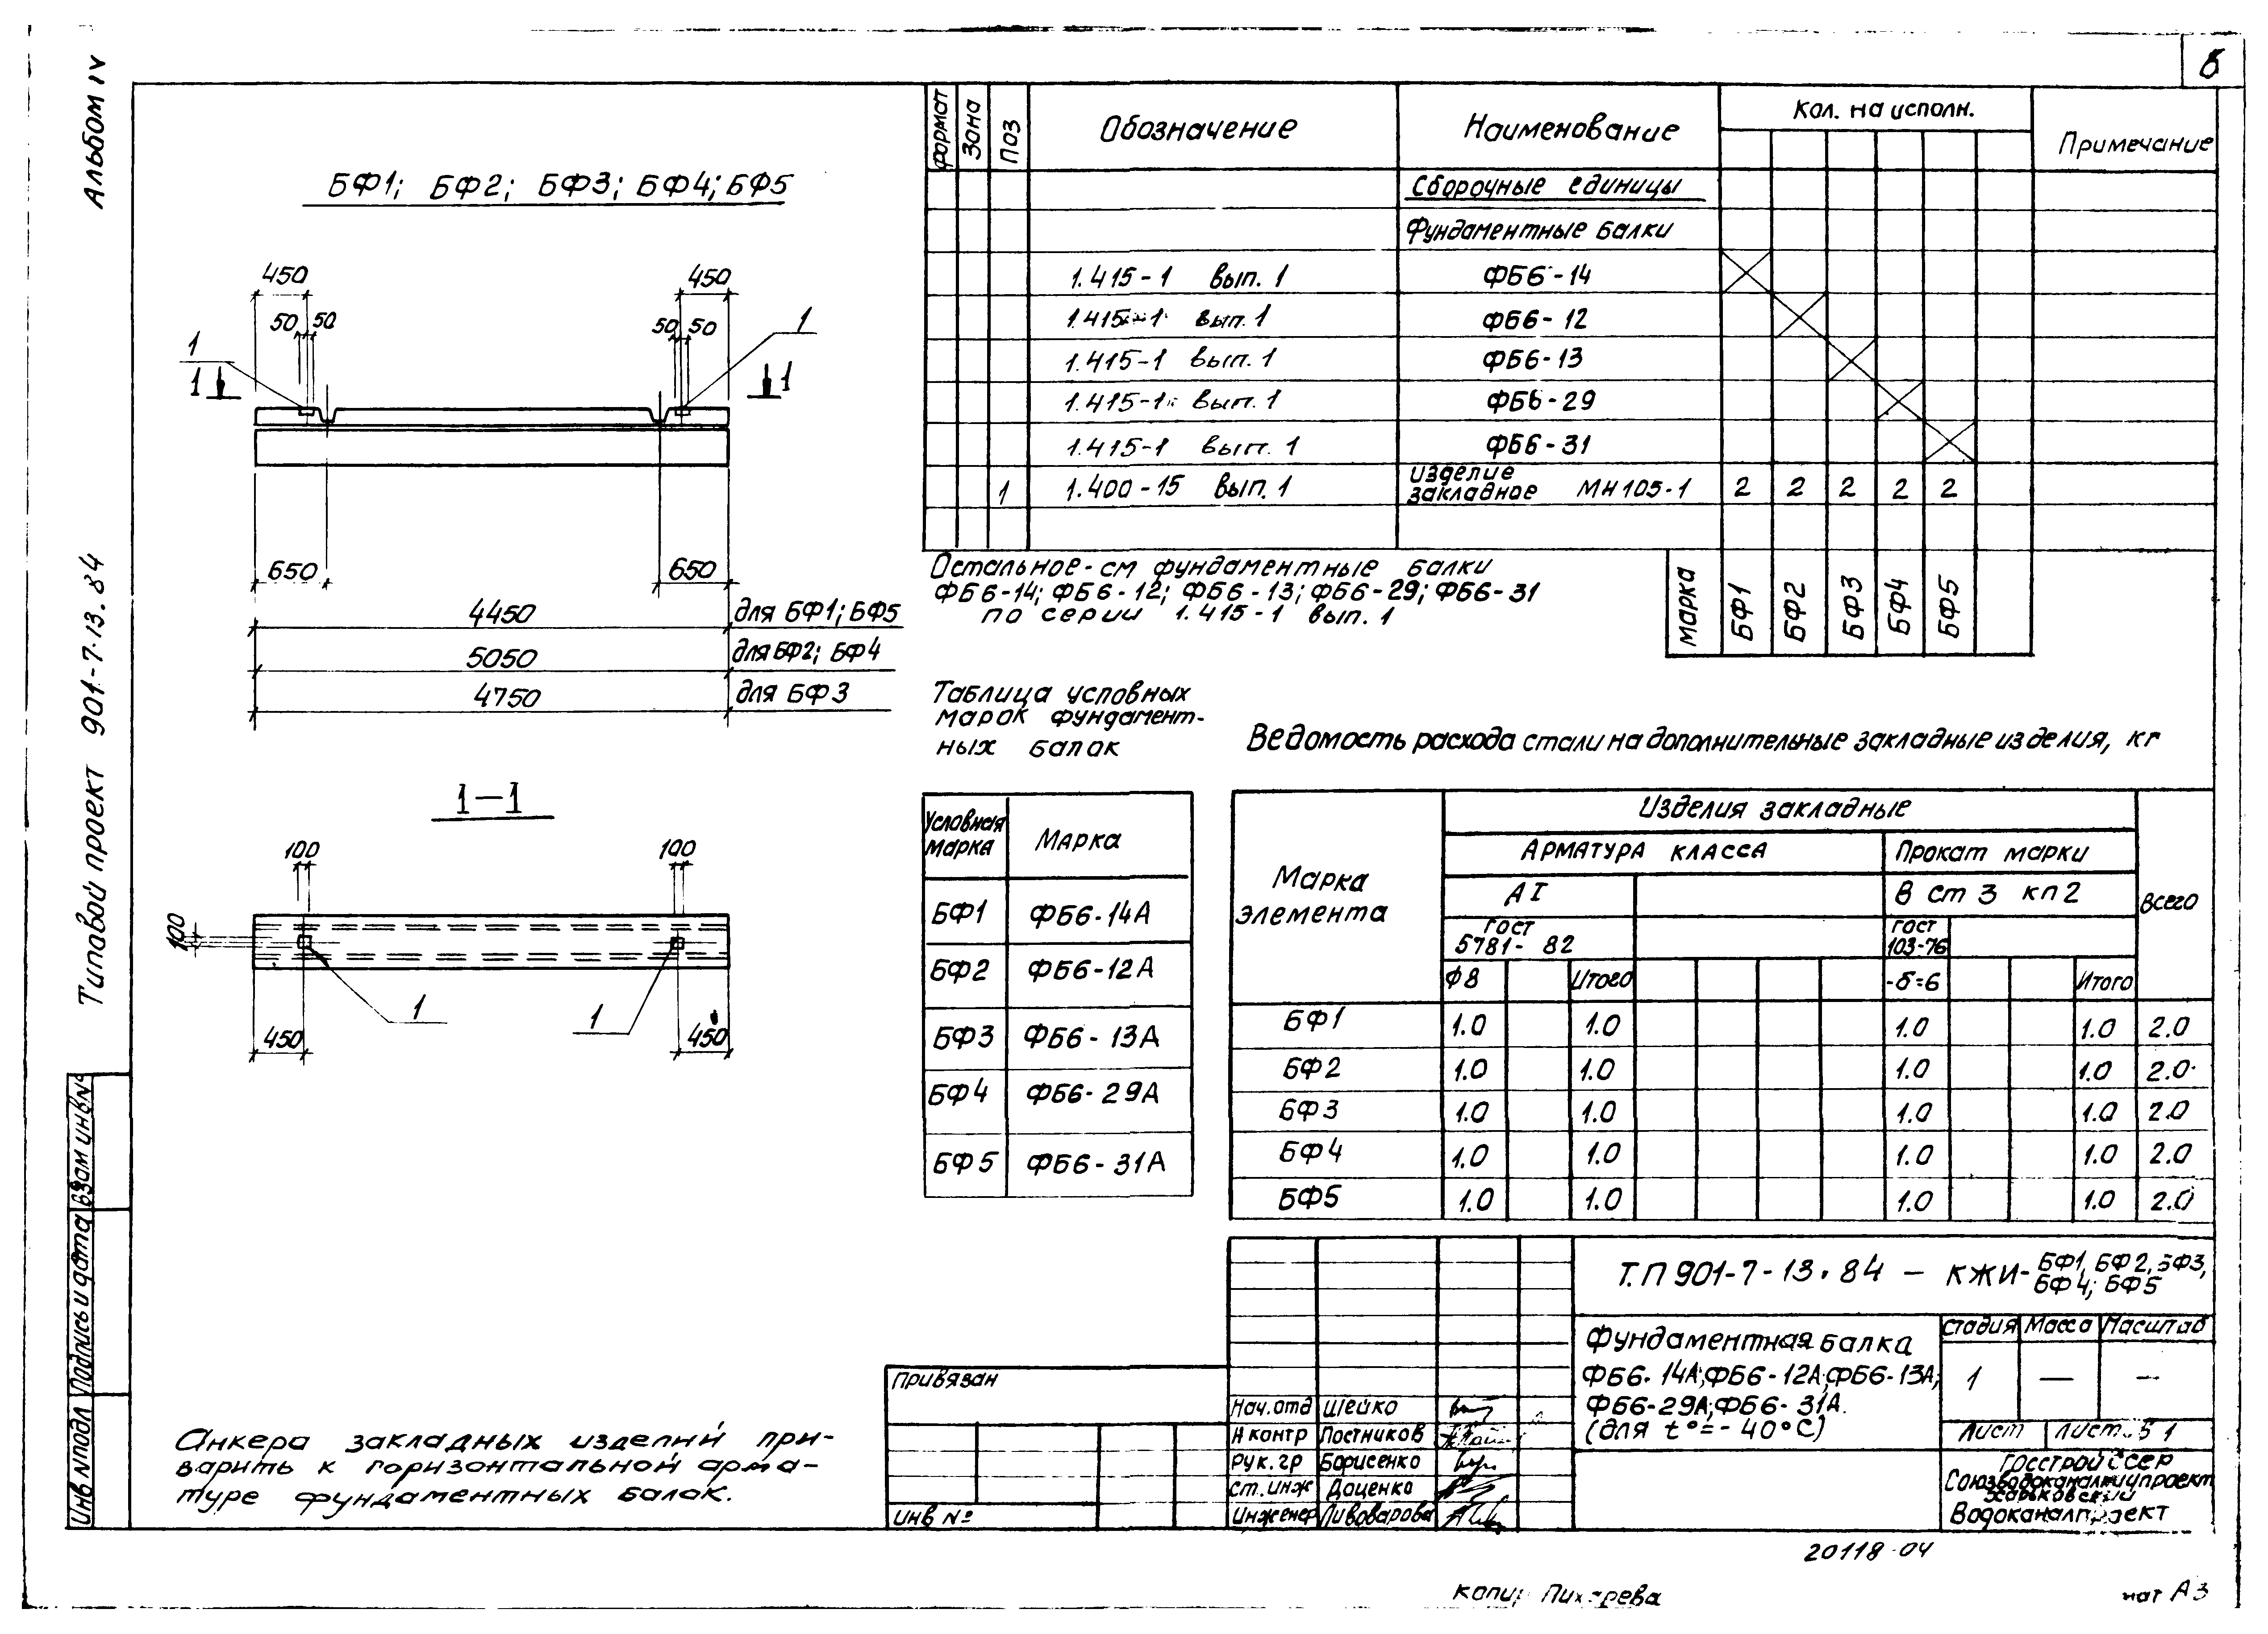 Альбом IV
Типовой проект 901-7-13.84
БФ1; БФ2; БФ3; БФ4; БФ5
450
450
50 50
50 50
1
1
1
1
650
650
4450 для БФ1; БФ5
5050 для БФ2; БФ4
4750 для БФ3
1-1
100
100
100
1
1
450
450
Анкера закладных изделий при-
варить к горизонтальной арма-
туре фундаментных балок.
Формат Зона Поз Обозначение Наименование Кол. на исполн. Примечание
Сборочные единицы
Фундаментные балки
1.415-1 вып. 1 ФБ6-14
1.415-1 вып. 1 ФБ6-12
1.415-1 вып. 1 ФБ6-13
1.415-1 вып. 1 ФБ6-29
1.415-1 вып. 1 ФБ6-31
1 1.400-15 вып. 1 изделие закладное МН105-1 2 2 2 2 2
марка БФ1 БФ2 БФ3 БФ4 БФ5
Остальное-см фундаментные балки
ФБ6-14; ФБ6-12; ФБ6-13; ФБ6-29; ФБ6-31
по серии 1.415-1 вып. 1
Таблица условных
марок фундамент-
ных балок
Условная марка Марка
БФ1 ФБ6-14А
БФ2 ФБ6-12А
БФ3 ФБ6-13А
БФ4 ФБ6-29А
БФ5 ФБ6-31А
Ведомость расхода стали на дополнительные закладные изделия, кг
Марка элемента Изделия закладные Всего
Арматура класса Прокат марки
АI В ст 3 кп2
ГОСТ 5781-82 ГОСТ 103-76
Ф8 Итого -δ=6 Итого
БФ1 1.0 1.0 1.0 1.0 2.0
БФ2 1.0 1.0 1.0 1.0 2.0
БФ3 1.0 1.0 1.0 1.0 2.0
БФ4 1.0 1.0 1.0 1.0 2.0
БФ5 1.0 1.0 1.0 1.0 2.0
Т.П 901-7-13.84 - КЖИ-БФ1, БФ2, БФ3,
БФ4; БФ5
Фундаментная балка
ФБ6-14А; ФБ6-12А; ФБ6-13А;
ФБ6-29А; ФБ6-31А.
(для t°=-40°С)
Стадия Масса Масштаб
1 — —
Лист Листов 1
Госстрой СССР
Союзводоканалниипроект
Харьковский
Водоканалпроект
Привязан
Инв №
Нач.отд Шейко
Н контр Постников
Рук. гр Борисенко
Ст. инж Даценко
Инженер Пивоварова
Взам инв №
Подпись и дата
Инв № подл
20118-04
А3